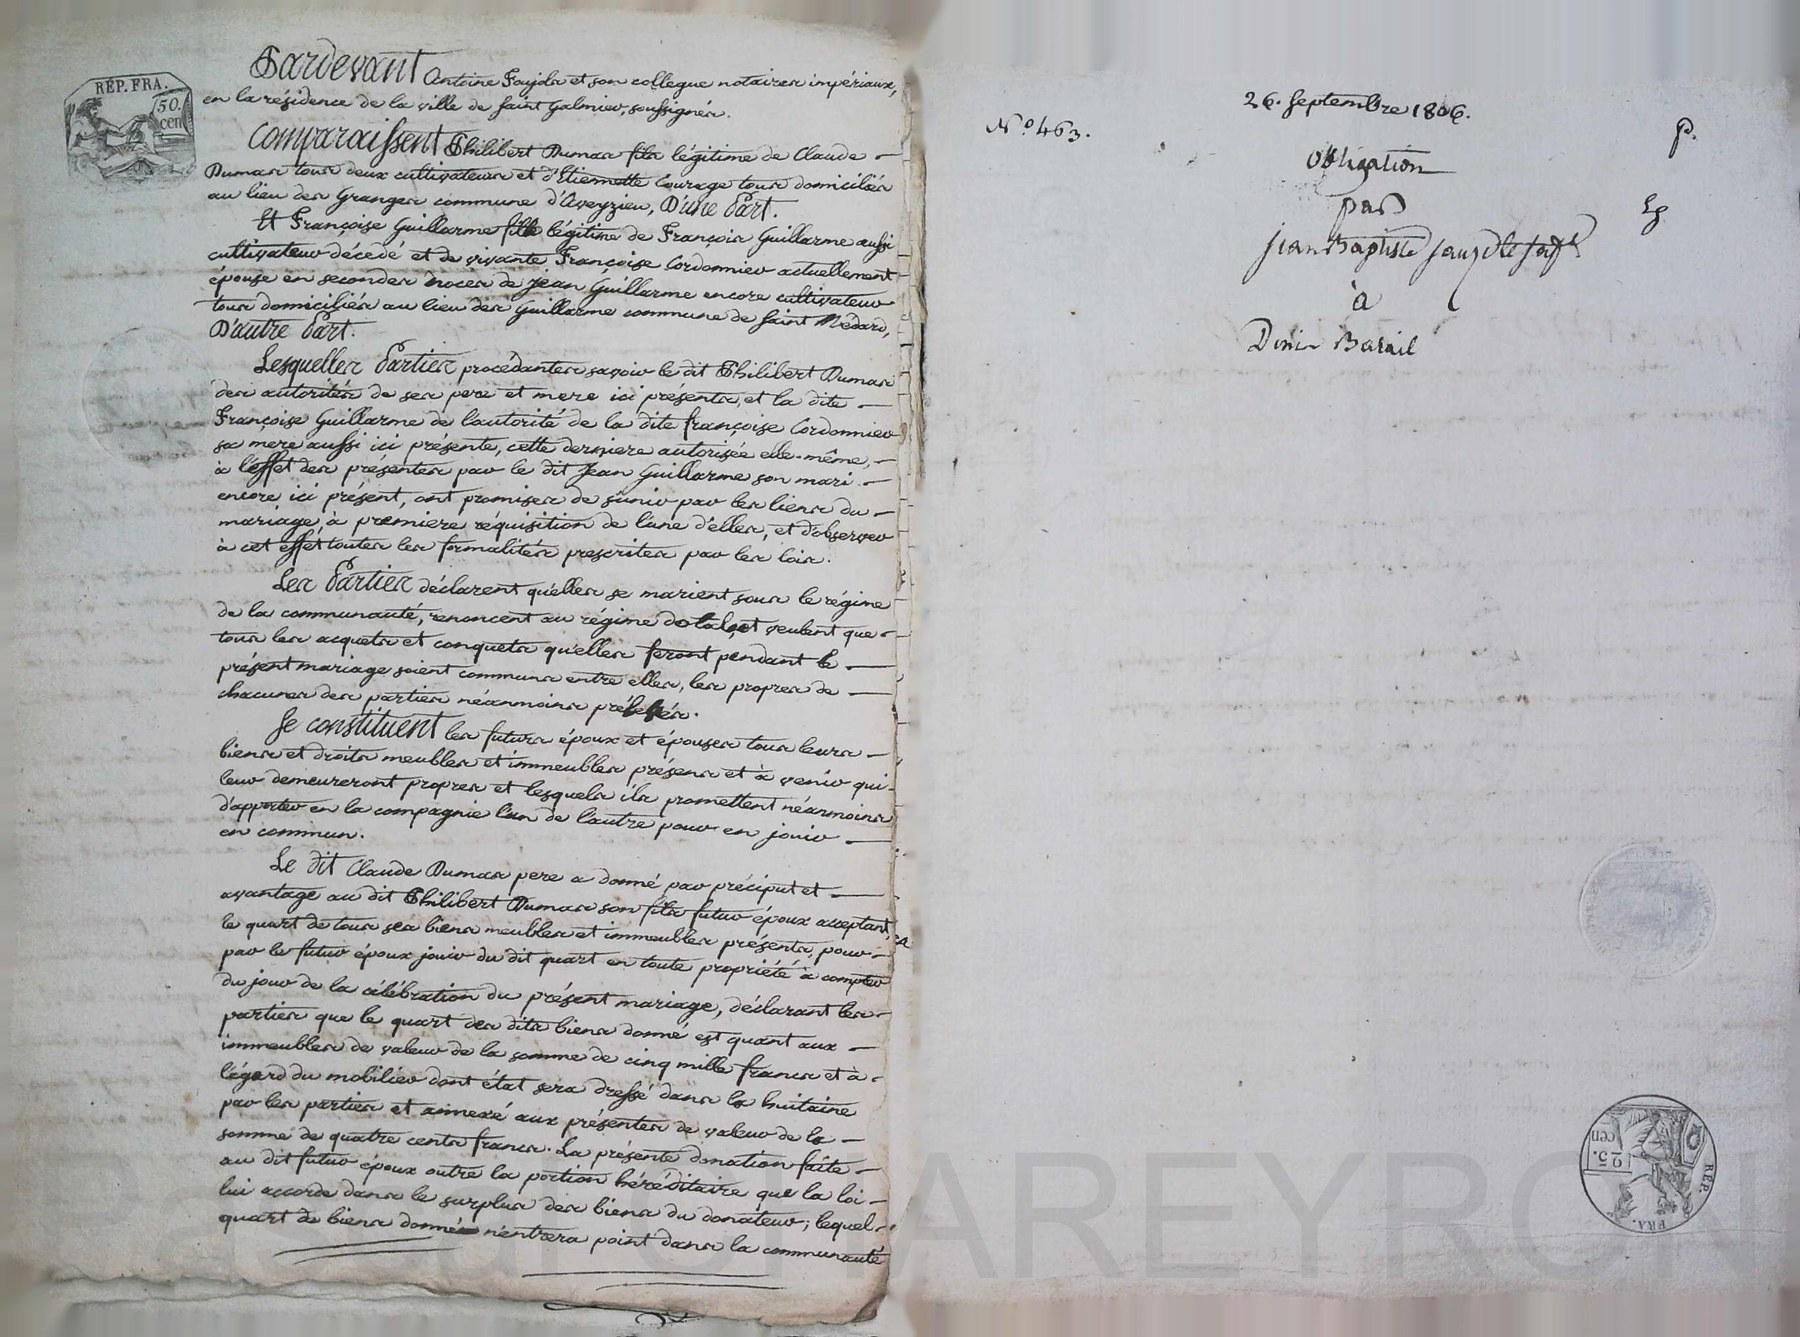 RÉP. FRA.
50.
cen
Pardevant Antoine Foujols et son collegue notaires impériaux,
en la résidence de la ville de Saint Galmier, soussignés.
Comparaissent Philibert Dumas fils légitime de Claude
Dumas tous deux cultivateurs et d'Etiennette Courage tous domiciliés
au lieu des Granges commune d'Aveyzieu, D'une Part.
Et Françoise Guillarme fille légitime de François Guillarme aussi
cultivateur décédé et de vivante Françoise Cordonnier actuellement
épouse en secondes noces de Jean Guillarme encore cultivateur
tous domiciliés au lieu des Guillarme commune de Saint Médard,
D'autre Part.
Lesquelles Parties procédantes savoir le dit Philibert Dumas
des autorités de ses pere et mere ici présents, et la dite
Françoise Guillarme de l'autorité de la dite françoise Cordonnier
sa mere aussi ici présente, cette derniere autorisée elle-même,
à l'effet des présentes par le dit Jean Guillarme son mari
encore ici présent, ont promises de s'unir par les liens du
mariage, à premiere réquisition de l'une d'elles, et d'observer
à cet effet toutes les formalités prescrites par les lois.
Les Parties déclarent qu'elles se marient sous le régime
de la communauté, renoncent au régime dotal et veulent que
tous les acquets et conquets qu'elles feront pendant le
présent mariage soient communs entre elles, les propres de
chacunes des parties néanmoins prélevés.
Se constituent les futurs époux et épouses tous leurs
biens et droits meubles et immeubles présens et à venir qui
leur demeureront propres et lesquels ils promettent néanmoins
d'apporter en la compagnie l'un de l'autre pour en jouir
en commun.
Le dit Claude Dumas pere a donné par préciput et
avantage au dit Philibert Dumas son fils futur époux acceptant,
le quart de tous ses biens meubles et immeubles présents, pour
par le futur époux jouir du dit quart en toute propriété à compter
du jour de la célébration du présent mariage, déclarant les
parties que le quart des dits biens donné est quant aux
immeubles de valeur de la somme de cinq mille francs et à
l'égard du mobilier dont état sera dressé dans la huitaine
par les parties et annexé aux présentes de valeur de la
somme de quatre cents francs. La présente donation faite
au dit futur époux outre la portion héréditaire que la loi
lui accorde dans le surplus des biens du donateur; lequel
quart de biens donnés n'entrera point dans la communauté
26. Septembre 1806.
N.º 463.
P.
Obligation
par
Jean Baptiste
à
Denis Barail
25.
cen
RÉP.
FRA.
CHAREYRON